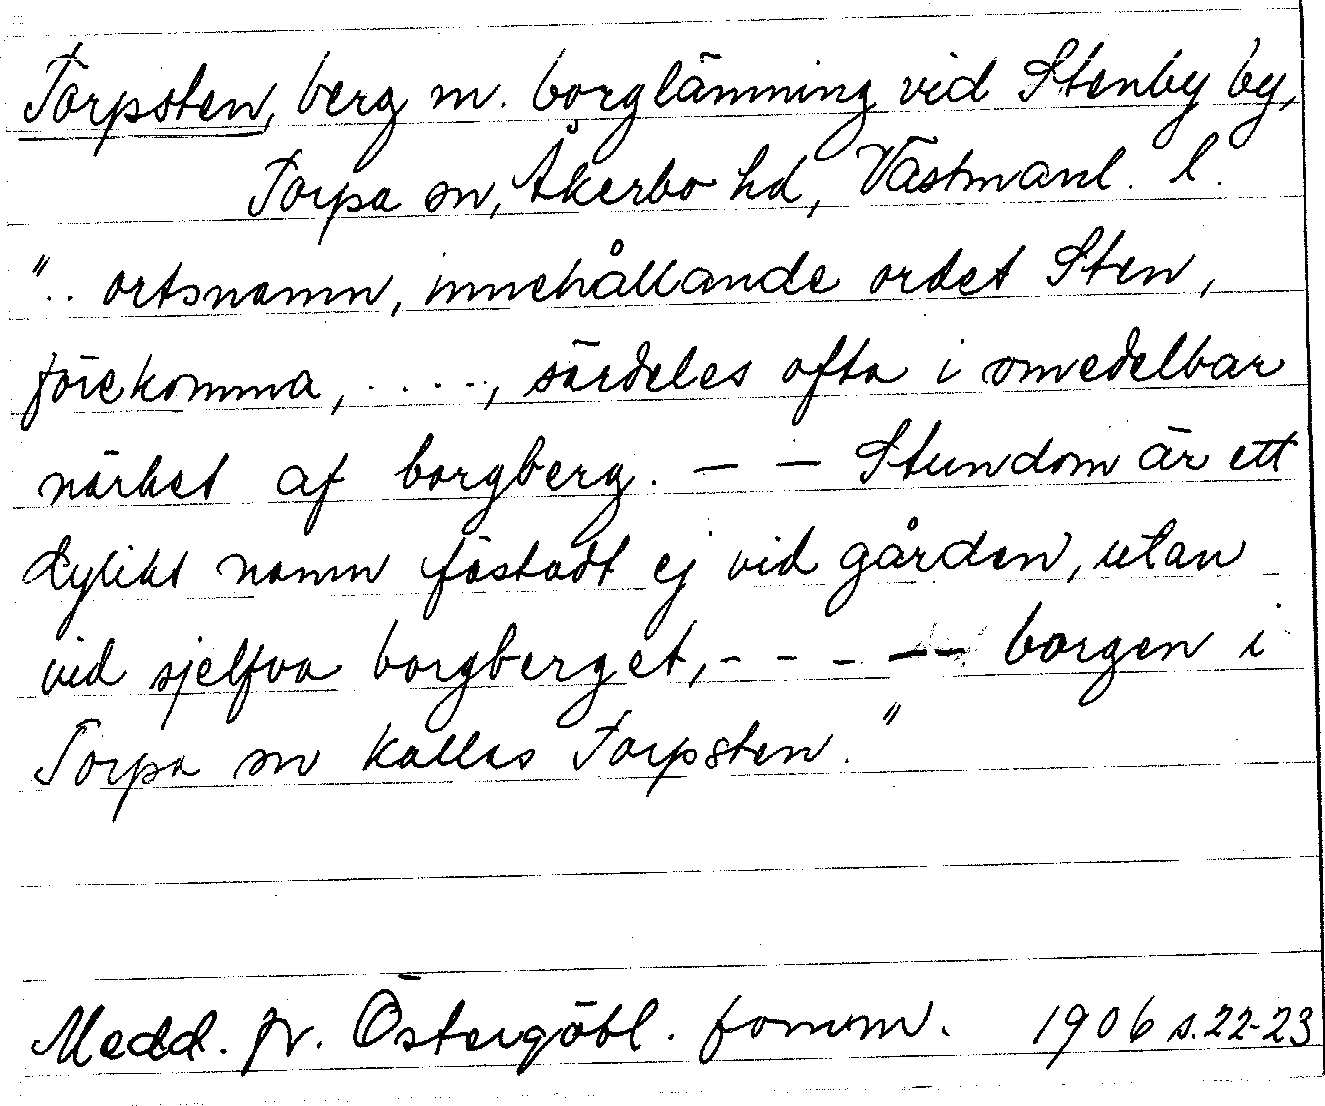 Torpsten, berg m. borglämning vid Stenby by,
Torpa sn, Åkerbo hd, Västmanl. l.
".. ortsnamn, innehållande ordet Sten,
förekomma, ...., särdeles ofta i omedelbar
närhet af borgberg. — — Stundom är ett
dylikt namn fästadt ej vid gården, utan
vid sjelfva borgberget, - - - — — borgen i
Torpa sn kallas Torpsten."
Medd. fr. Östergötl. fornm. 1906 s. 22-23